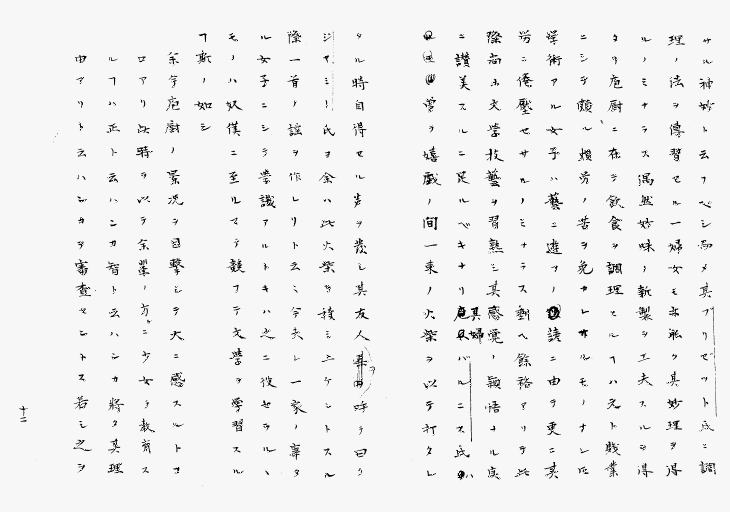 サル神妙ト云フベシ而〆其ブリゼット氏ニ調
理ノ法ヲ傳習セル一婦女モ亦能ク其妙理ヲ得
ルノミナラス偶然妙味ノ新製ヲ工夫スルヲ得
タリ庖厨ニ在テ飲食ヲ調理スルハ元ト賤業
ニシテ頗ル煩労ノ苦ヲ免カレサルモノナレ𪜈
學術アル女子ハ藝ニ遊フノ讀ニ由テ更ニ其
労ニ倦壓セサルノミナラス剰ヘ餘裕アリテ此
際高尚文学技藝ヲ習熟シ其感覚ノ穎悟ナル実
ニ讃美スルニ足ルベキナリ其婦バルニス氏
曽テ嬉戯ノ間一束ノ火柴ヲ以テ打タレ
タル時自得セル声ヲ發シ其友人ヲ呼テ曰ク
ジヤミー氏ヲ余ハ此火柴ヲ積ミ上ケントスル
際一首ノ謡ヲ作レリト云ミ今夫レ一家ノ事タ
ル女子ニシテ學識アルトキハ之ニ役セラル丶
モノハ奴僕ニ至ルマテ競フテ文學ヲ學習スル
フ斯ノ如シ
余今庖厨ノ景況ヲ目撃シテ大ニ感スルトコ
ロアリ此特ヲ以テ余輩ノ方ニ少女ヲ教育ス
ルフハ正ト云ハンカ智ト云ハンカ將タ真理
中アリト云ハンカヲ審査セントス若シ之ヲ
十二